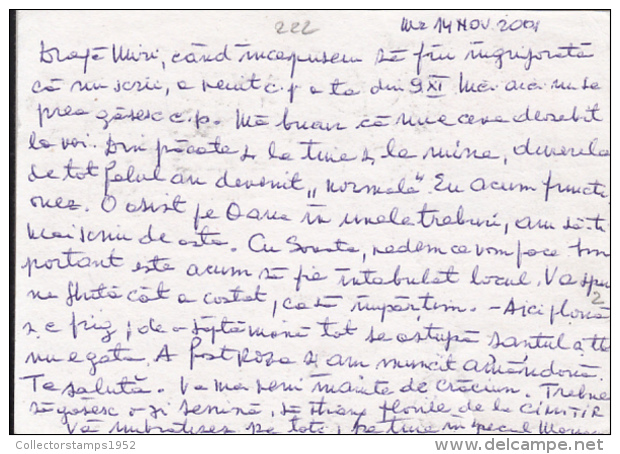 222 Mz 14 NOV. 2001
Dragă Miri, când începusem să fiu îngrijorată
că nu scrii, a venit c.p a ta din 9 XI Mai aici nu se
prea găsesc c.p. Mă bucur că nu e ceva deosebit
la voi. Din păcate și la tine și la mine, diverele
de tot felul au devenit "normale". Eu acum funcți
onez. O asist pe Oana în unele treburi, am să-ți
mai scriu de asta. Cu Sonata, vedem ce vom face Im
portant este acum să fie întabulat locul. Va spu
ne fluta cât a costat, ca să împărțim. - Aici plouă
2
și e frig; de o săptămână tot se astupă șanțul a tt
nu e gata. A fost Roza și am muncit amândouă.
Te salută. Va mai veni înainte de crăciun. Trebuie
să găsesc o zi senină, să strâng florile de la CIMITIR
Vă îmbrățișez pe toți, pe tine în special
Collectorstamps1952
delcampe.net